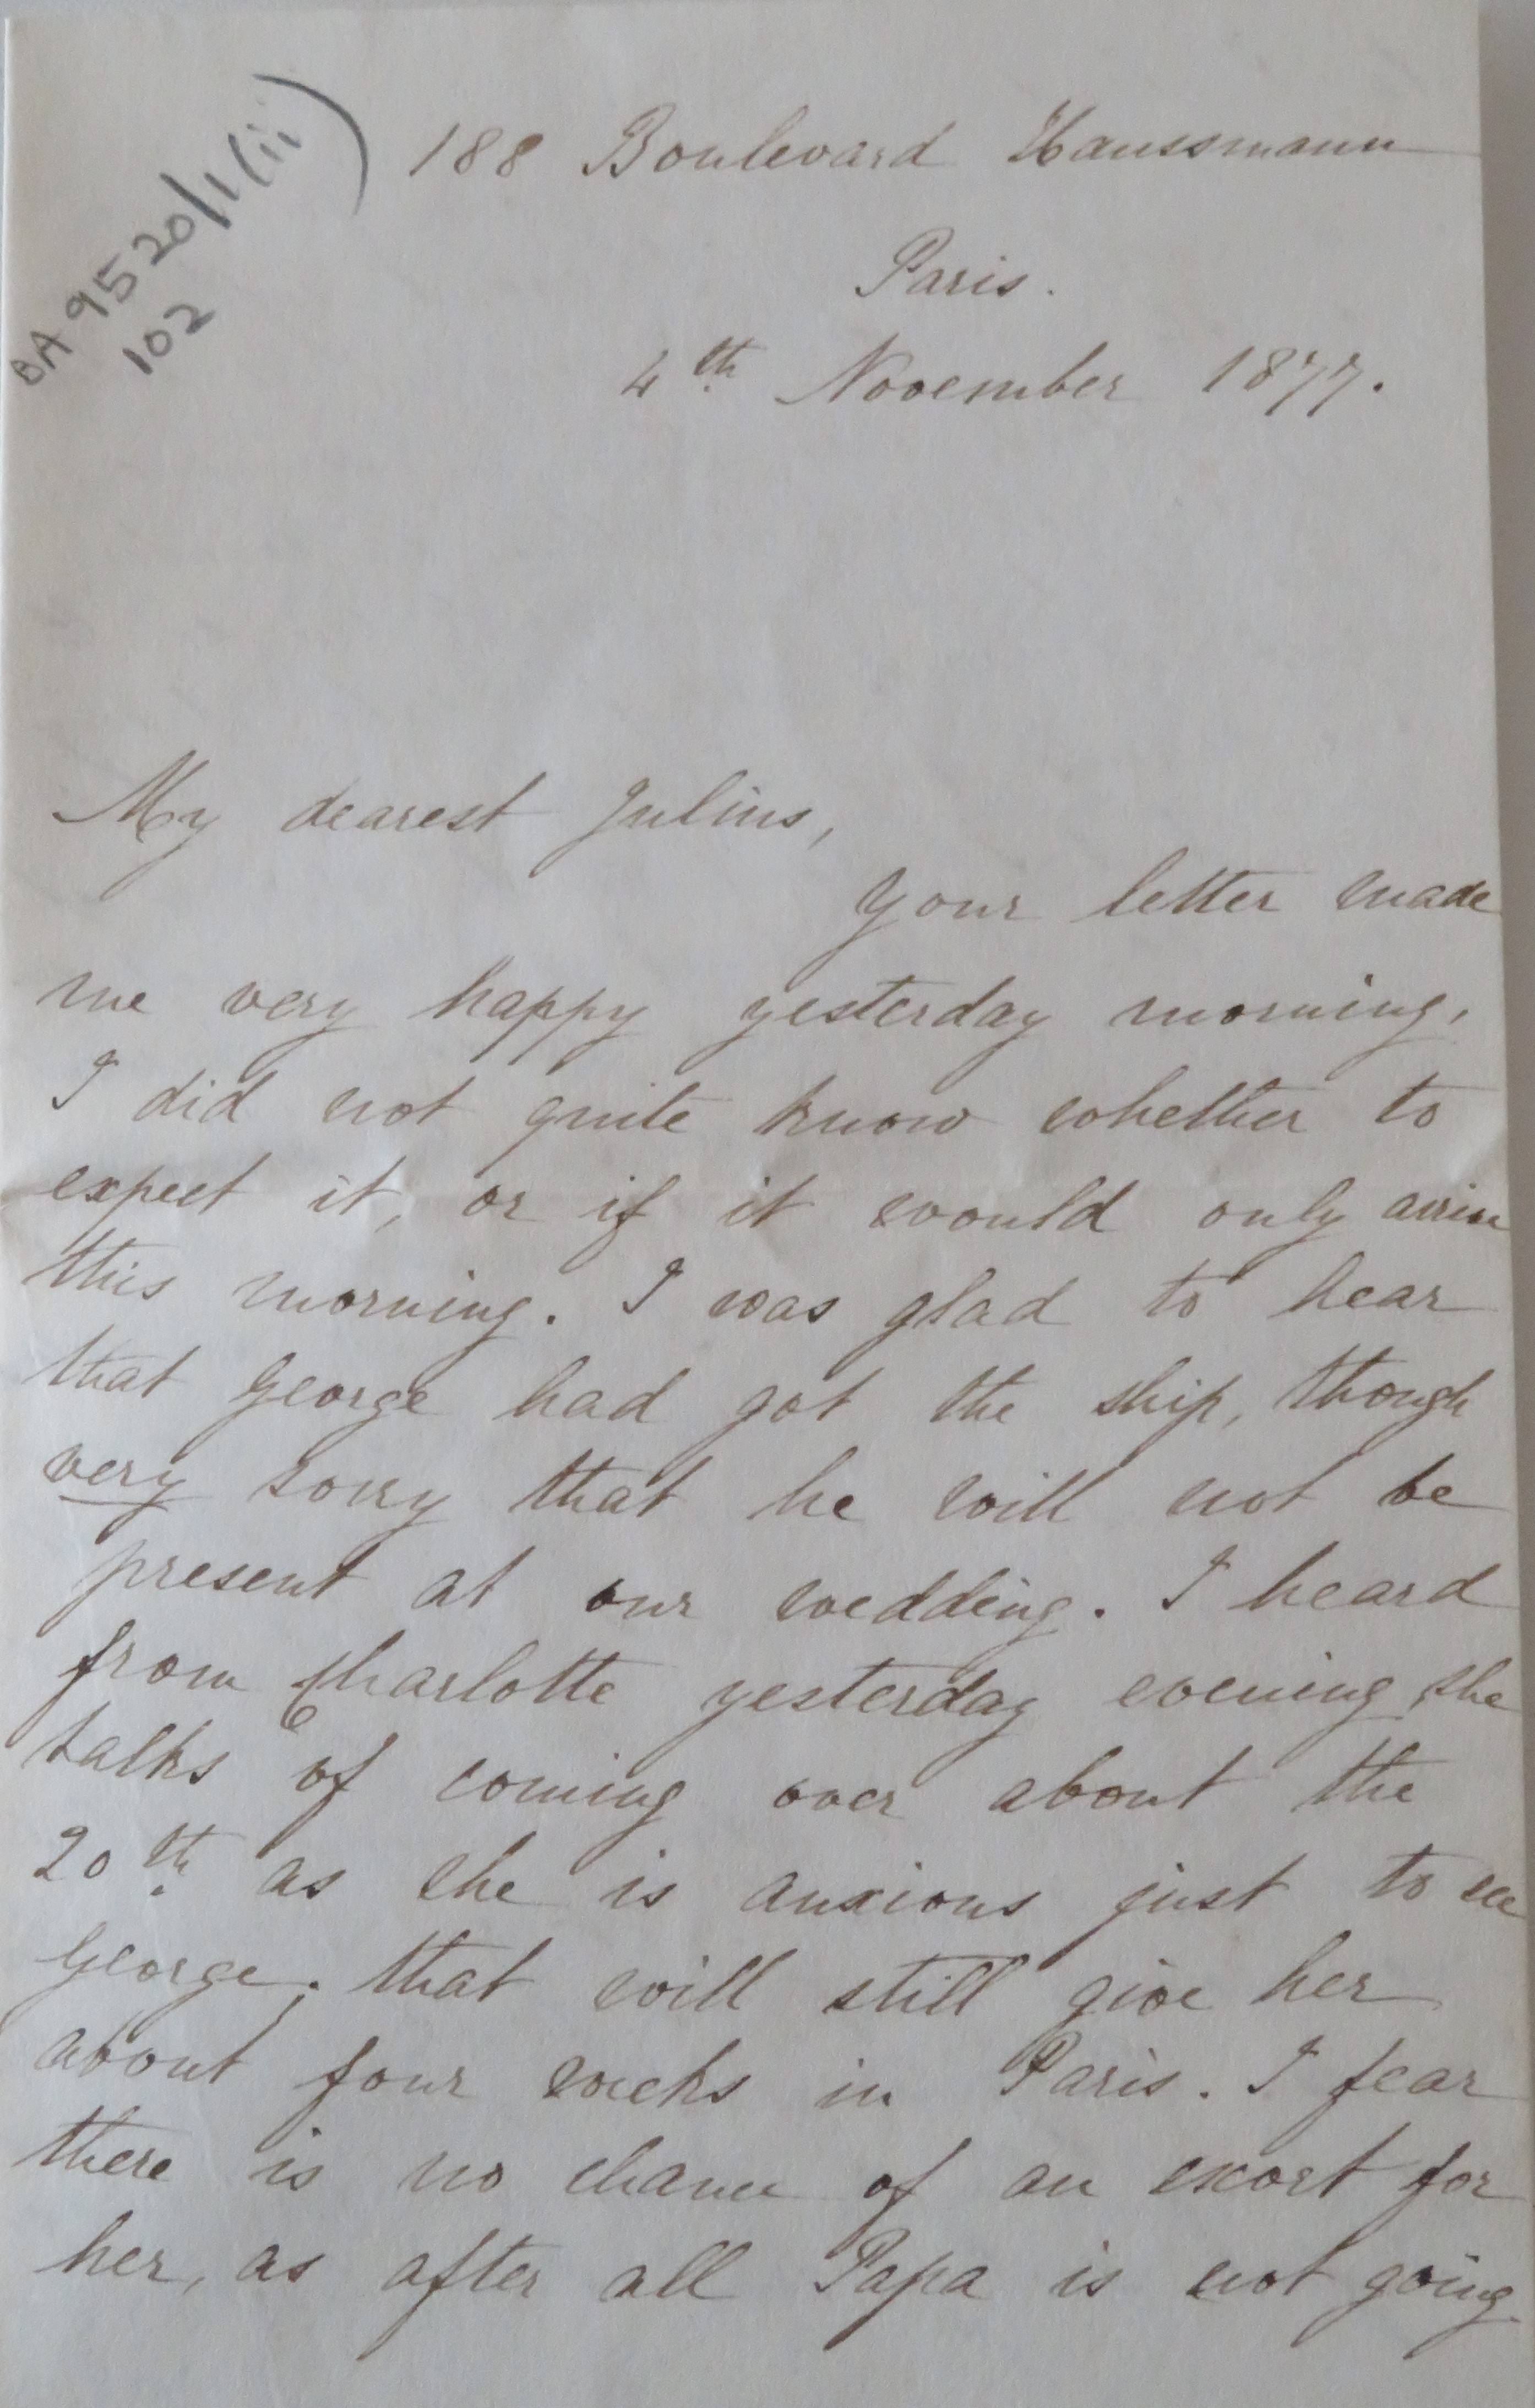 BA 9520/1/(ii)
102
188 Boulevard Haussmann
Paris.
4th November 1877.
My dearest Julius,
Your letter made
me very happy yesterday morning,
I did not quite know whether to
expect it, or if it would only arrive
this morning. I was glad to hear
that George had got the ship, though
very sorry that he will not be
present at our wedding. I heard
from Charlotte yesterday evening, she
talks of coming over about the
20th as she is anxious just to see
George; that will still give her
about four weeks in Paris. I fear
there is no chance of an escort for
her, as after all Papa is not going